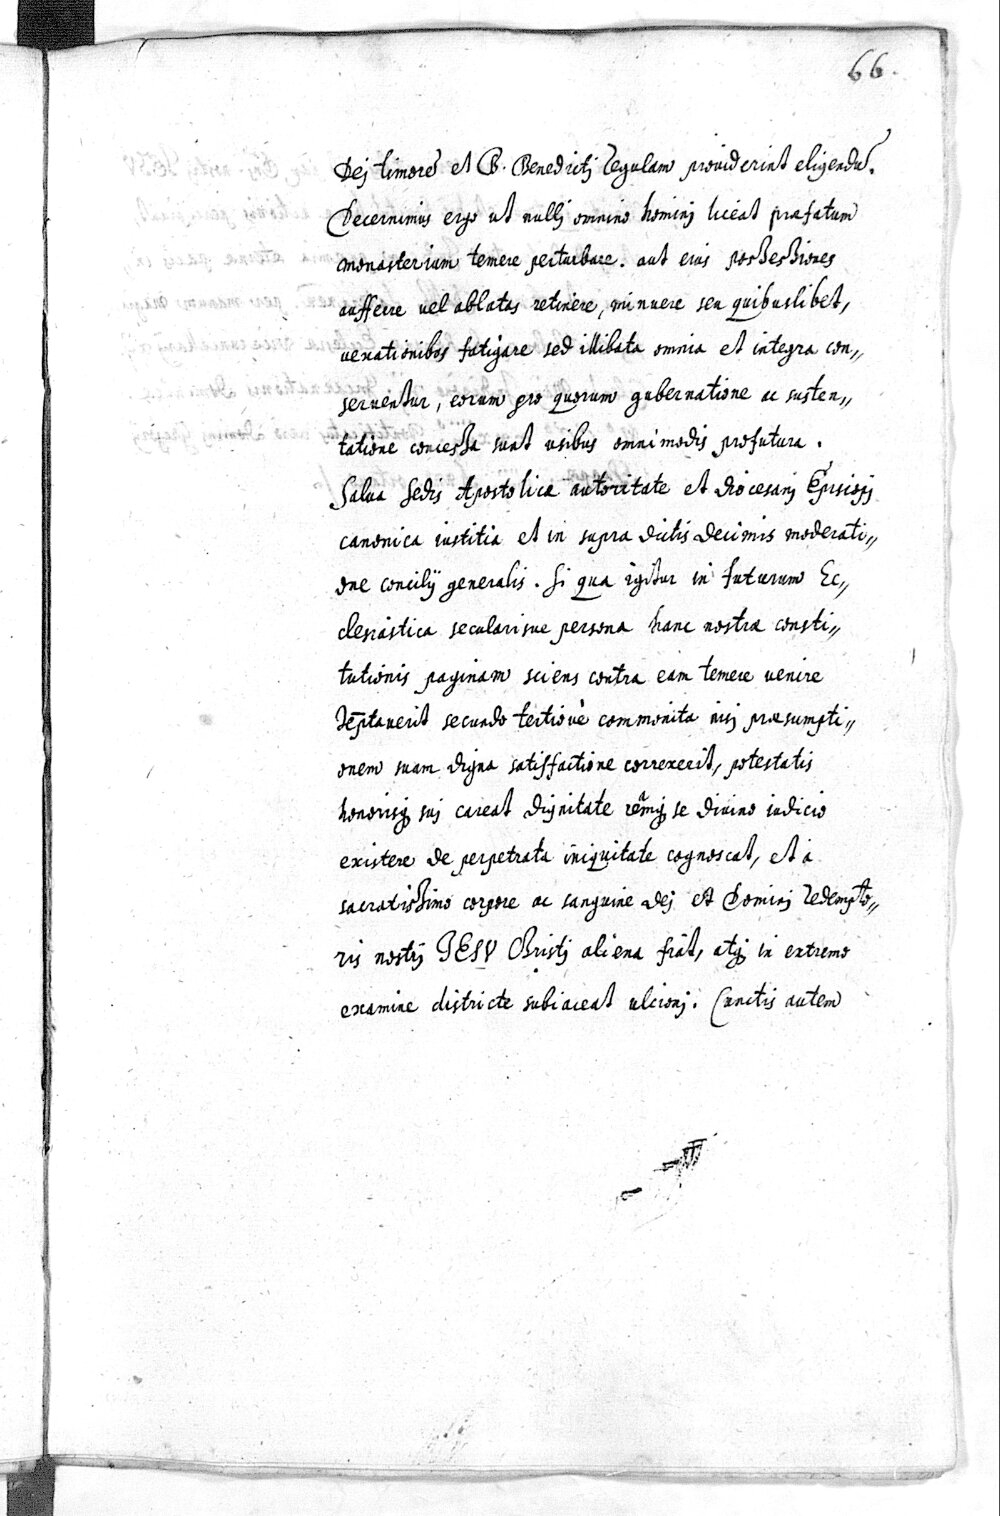 66.
Dej timorē et B. Benedictj regulam providerint eligendū.
Decernimus ergo ut nullj omnino hominj liceat præfatum
monasterium temere perturbare. aut eius possessiones
aufferre vel ablatas retinere, minuere seu quibuslibet,
vexationibus fatigare sed illibata omnia et integra con,,
serventur, eorum pro quorum gubernatione ac susten,,
tatione concessa sunt usibus omnimodis profutura.
Salva sedis Apostolicæ autoritate et Diocesanj Episcopj
canonica iustitia et in supra dictis Decimis moderati,,
one concilij generalis. Si qua igitur in futurum Ec,,
clesiastica secularisve persona hanc nostræ consti,,
tutionis paginam sciens contra eam temere venire
tēptaverit secundo tertiove commonita nisj præsumpti,,
onem suam digna satisfactione correxerit, potestatis
honorisq suj careat dignitate reāmq se divino iudicio
existere de perpetrata iniquitate cognoscat, et a
sacratissimo corpore ac sanguine Dej et Dominj redempto,,
ris nostrj IESV Christj aliena fiat, atq in extremo
examine districte subiaceat ulcionj. Cunctis autem